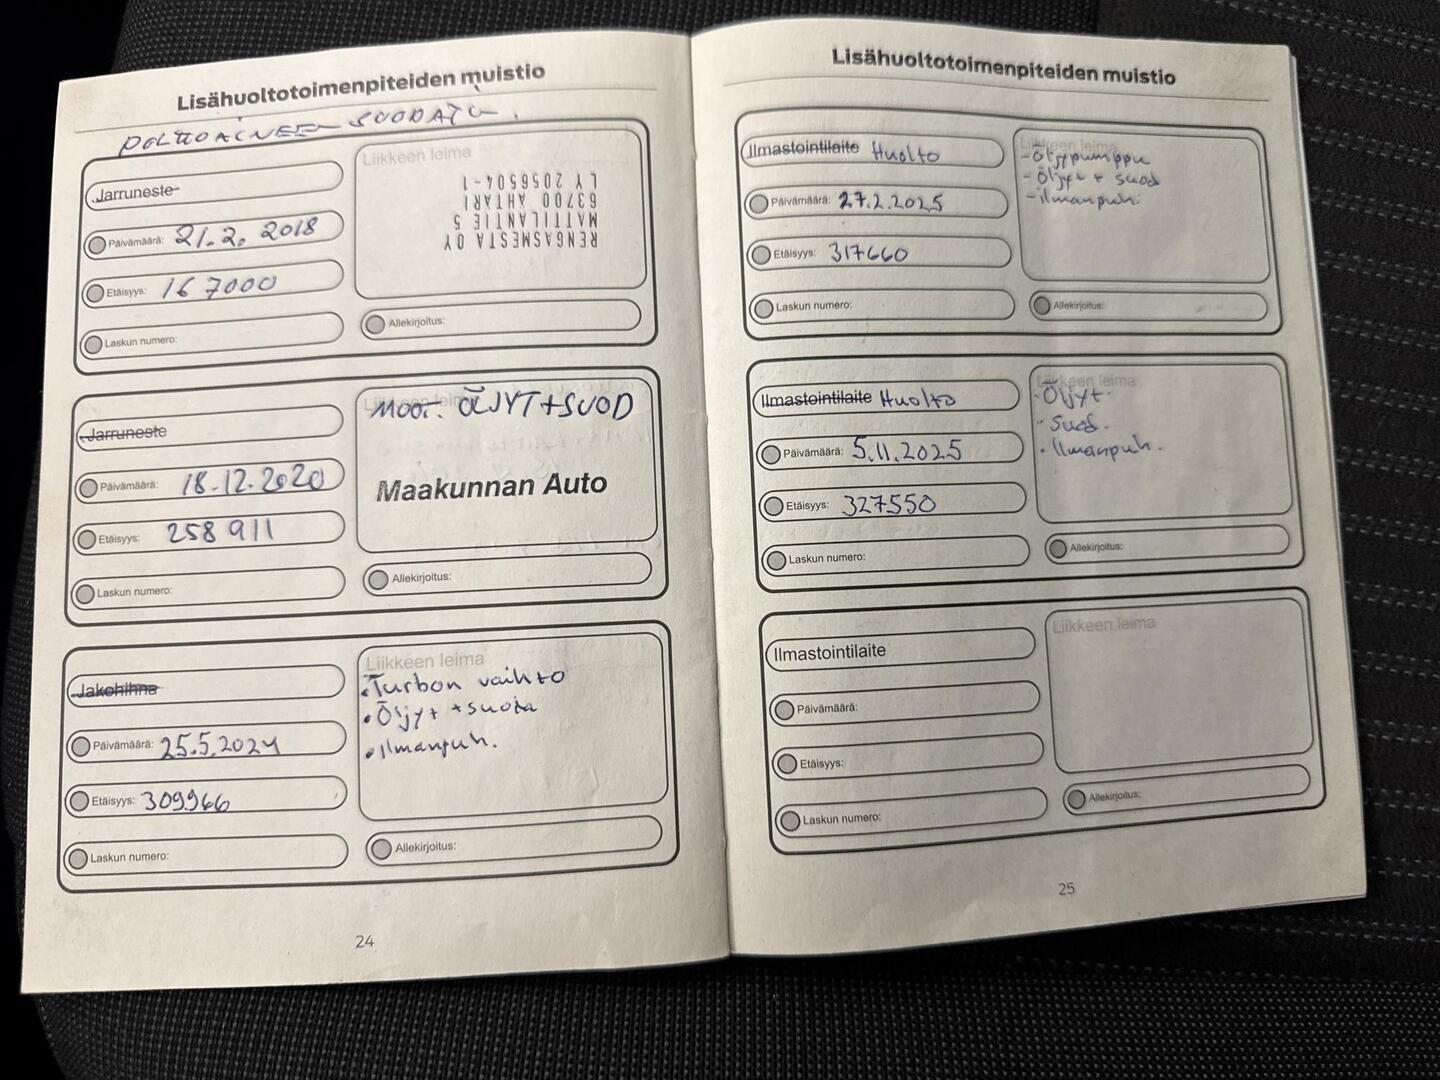 Lisähuoltotoimenpiteiden muistio
POLTTOAINEEN SUODATIN.
Jarruneste
Päivämäärä: 21.2.2018
Etäisyys: 167000
Laskun numero:
Liikkeen leima
RENGASMESTA OY
MATTILANTIE 5
63700 AHTARI
LY 2056504-1
Allekirjoitus:
Jarruneste
Päivämäärä: 18.12.2020
Etäisyys: 258 911
Laskun numero:
Liikkeen leima
MOOT. ÖLJYT+SUOD
Maakunnan Auto
Allekirjoitus:
Jakohihna
Päivämäärä: 25.5.2024
Etäisyys: 309966
Laskun numero:
Liikkeen leima
• Turbon vaihto
• Öljyt + suota
• Ilmanpuh.
Allekirjoitus:
24
Lisähuoltotoimenpiteiden muistio
Ilmastointilaite Huolto
Päivämäärä: 27.2.2025
Etäisyys: 317660
Laskun numero:
Liikkeen leima
- Öljypumppu
- Öljyt + suod
- ilmanpuh.
Allekirjoitus:
Ilmastointilaite Huolto
Päivämäärä: 5.11.2025
Etäisyys: 327550
Laskun numero:
Liikkeen leima
• Öljyt.
• Suod.
• Ilmanpuh.
Allekirjoitus:
Ilmastointilaite
Päivämäärä:
Etäisyys:
Laskun numero:
Liikkeen leima
Allekirjoitus:
25